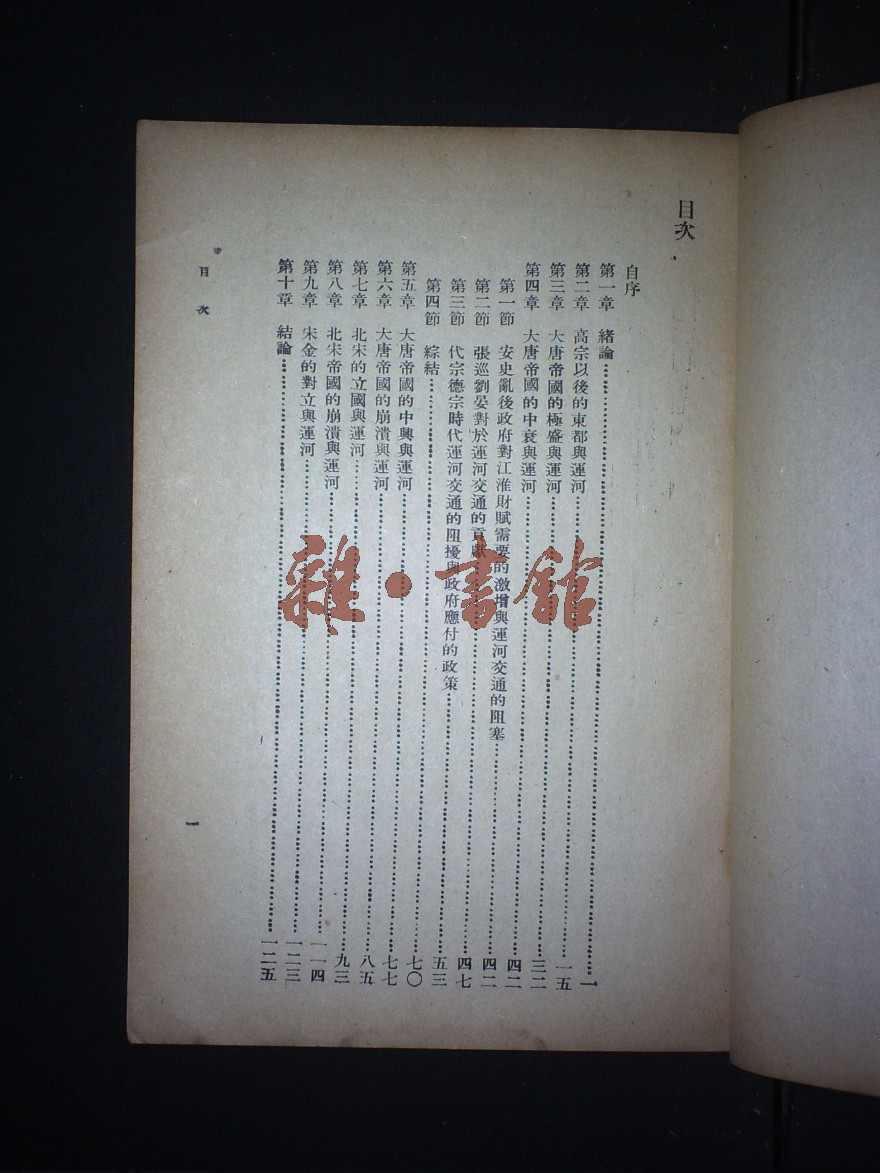 目次
自序
第一章 緒論……一
第二章 高宗以後的東都與運河……一五
第三章 大唐帝國的極盛與運河……三二
第四章 大唐帝國的中衰與運河……四二
第一節 安史亂後政府對江淮財賦需要的激增與運河交通的阻塞……四二
第二節 張巡劉晏對於運河交通的貢獻……四七
第三節 代宗德宗時代運河交通的阻擾與政府應付的政策……五三
第四節 綜結……七〇
第五章 大唐帝國的中興與運河……七七
第六章 大唐帝國的崩潰與運河……八五
第七章 北宋的立國與運河……九三
第八章 北宋帝國的崩潰與運河……一一四
第九章 宋金的對立與運河……一二三
第十章 結論……一二五
目次
一
雜·書館